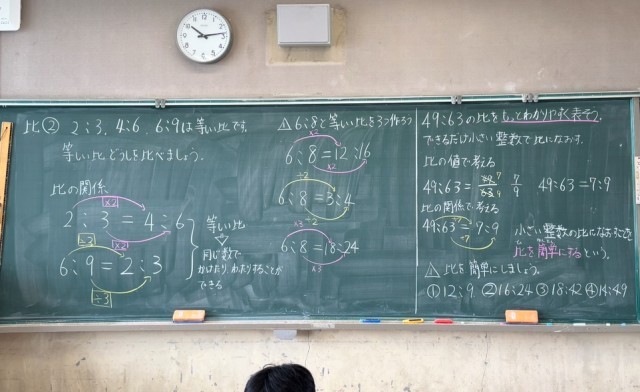 比② 2:3, 4:6, 6:9は等しい比です。
等しい比どうしを比べましょう。
比の関係
×2
2:3=4:6
×2
6:9=2:3
÷3
等しい比
同じ数で
かけたり、わったりすることが
できる
△ 6:8と等しい比を3つ作ろう
×2
6:8=12:16
×2
÷2
6:8=3:4
÷2
×3
6:8=18:24
×3
49:63の比をもっとわかりやすく表そう。
できるだけ小さい整数で比になおす。
比の値で考える
49:63= 49 7 63 9 7/9 49:63=7:9
比の関係で考える
÷7
49:63=7:9
÷7
小さい整数の比になおすことを
比を簡単にするという。
△ 比を簡単にしましょう。
①12:9 ②16:24 ③18:42 ④14:49